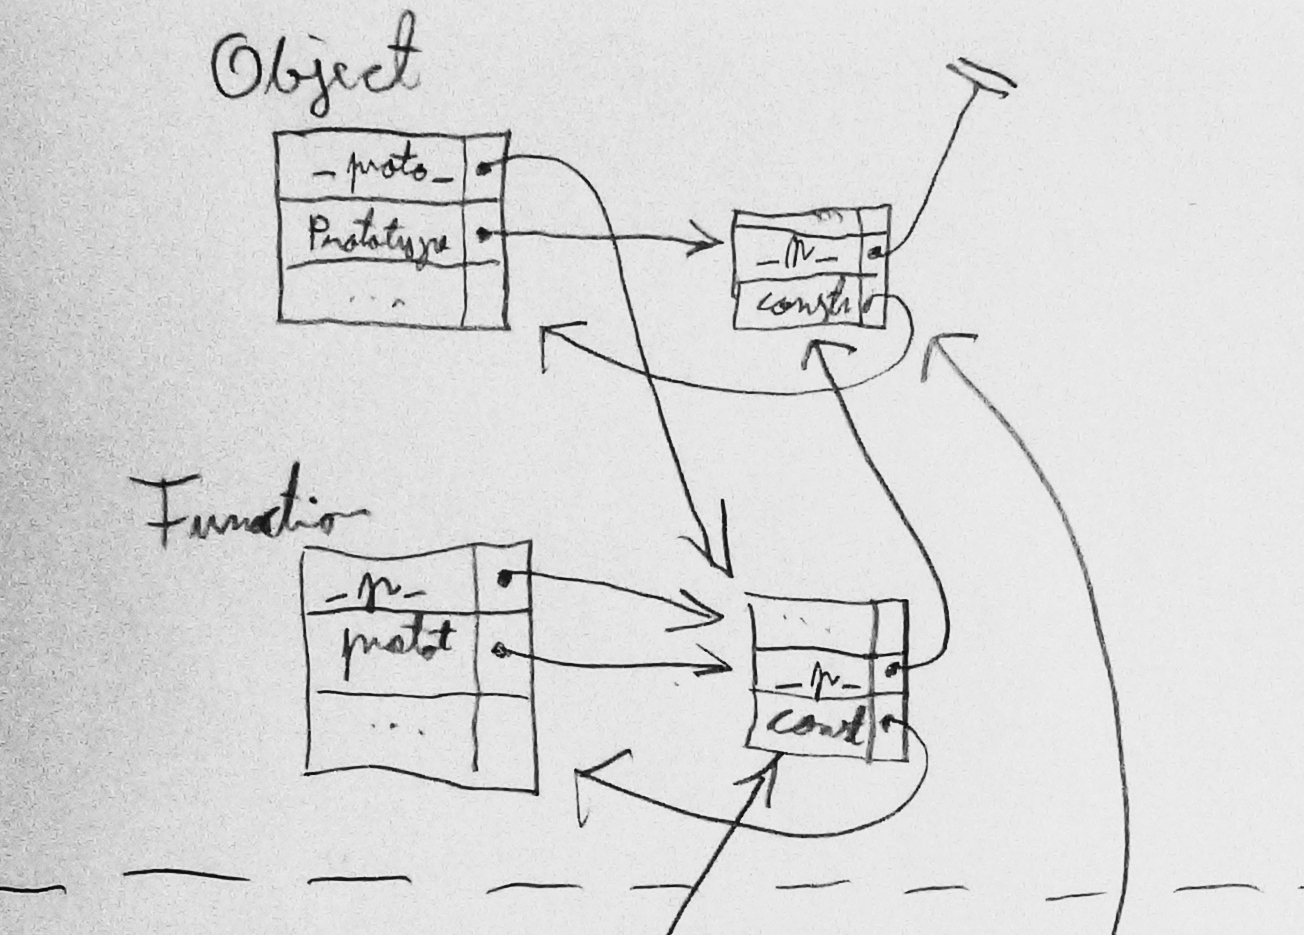 Object
_proto_
Prototype
...
_p_
constr
Function
_p_
protot
...
...
_p_
const